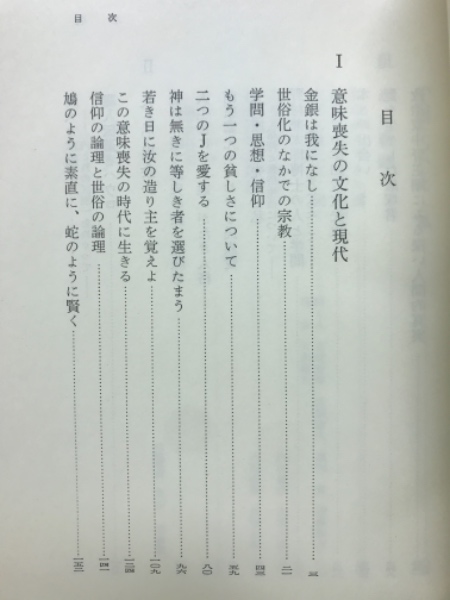 目　次
目　次
I　意味喪失の文化と現代
金銀は我になし……三
世俗化のなかでの宗教……二一
学問・思想・信仰……四三
もう一つの貧しさについて……五九
二つのJを愛する……八〇
神は無きに等しき者を選びたまう……九六
若き日に汝の造り主を覚えよ……一〇九
この意味喪失の時代に生きる……一二四
信仰の論理と世俗の論理……一四一
鳩のように素直に、蛇のように賢く……一五二